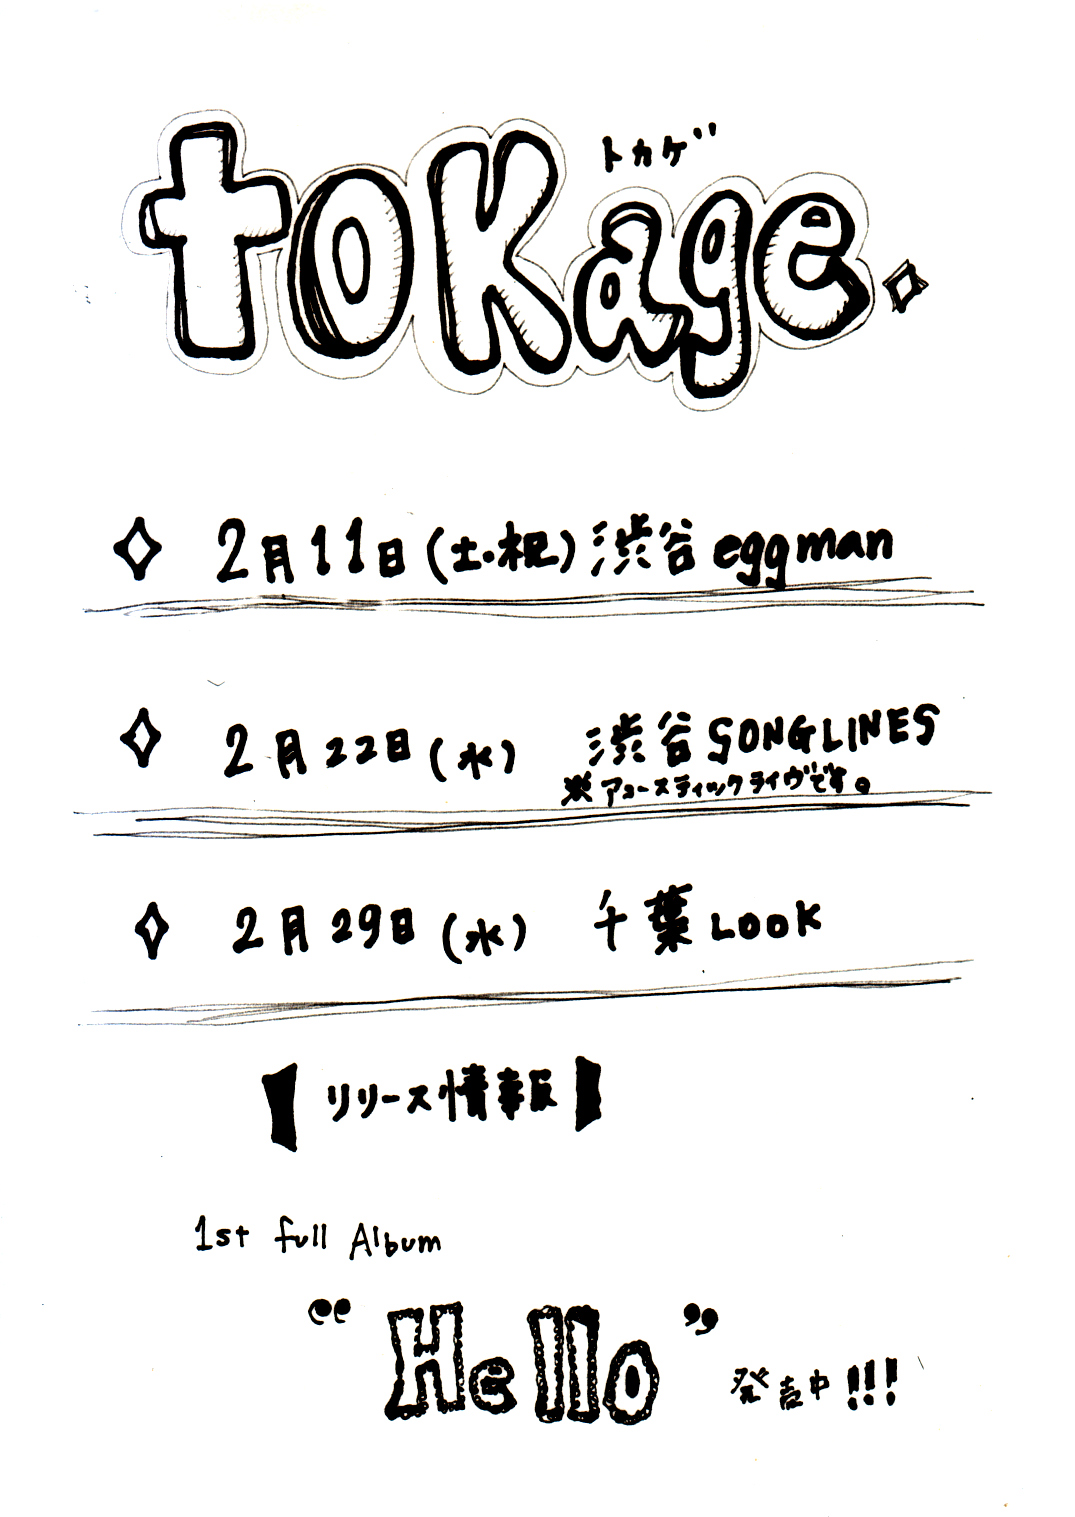 トカゲ
tokage.
2月11日(土・祝)渋谷eggman
2月22日(水) 渋谷SONGLINES
※アコースティックライヴです。
2月29日(水) 千葉LOOK
【リリース情報】
1st full Album
“Hello” 発売中!!!